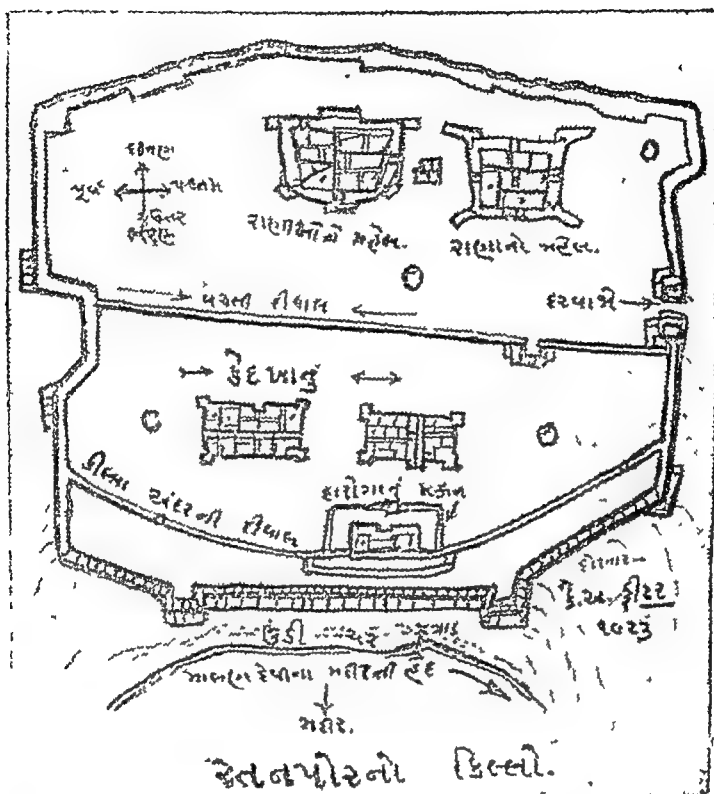 દક્ષિણ
પૂર્વ પશ્ચિમ
ઉત્તર
રાણીઓનો મહેલ.
રાણાનો મહેલ.
વચલી દીવાલ
દરવાજો
કેદખાનું
કીલ્લા અંદરની દીવાલ
દારોગાનું મકાન
દોરનાર
૧૯૨૩
માલણ દેવીના મંદીરની હદ
મંદીર.
કેતનપોરનો કિલ્લો.